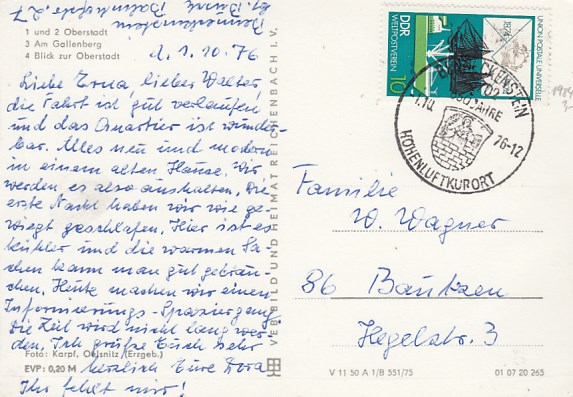 1 und 2 Oberstadt
3 Am Gallenberg
4 Blick zur Oberstadt
d. 1. 10. 76
Liebe Erna, lieber Walter,
die Fahrt ist gut verlaufen
und das Quartier ist wunder-
bar. Alles neu und modern
in einem alten Hause. Wir
werden es also aushalten. Die
erste Nacht haben wir wie ge-
wiegt geschlafen. Hier ist es
kühler und die warmen Sa-
chen kann man gut gebrau-
chen. Heute machen wir einen
Informierungs-Spaziergang
die Zeit wird nicht lang wer-
den. Ich grüße Euch sehr
Foto: Karpf, Oelsnitz (Erzgeb.)
herzlich Eure Dora
EVP: 0,20 M
Ihr fehlt mir!
VEB BILD UND HEIMAT REICHENBACH I. V.
DDR
WELTPOSTVEREIN
10
1874
UNION POSTALE UNIVERSELLE
1.10.
76-12
JAHRE
HÖHENLUFTKURORT
Familie
W. Wagner
86 Bautzen
Hegelstr. 3
V 11 50 A 1/B 551/75
01 07 20 265